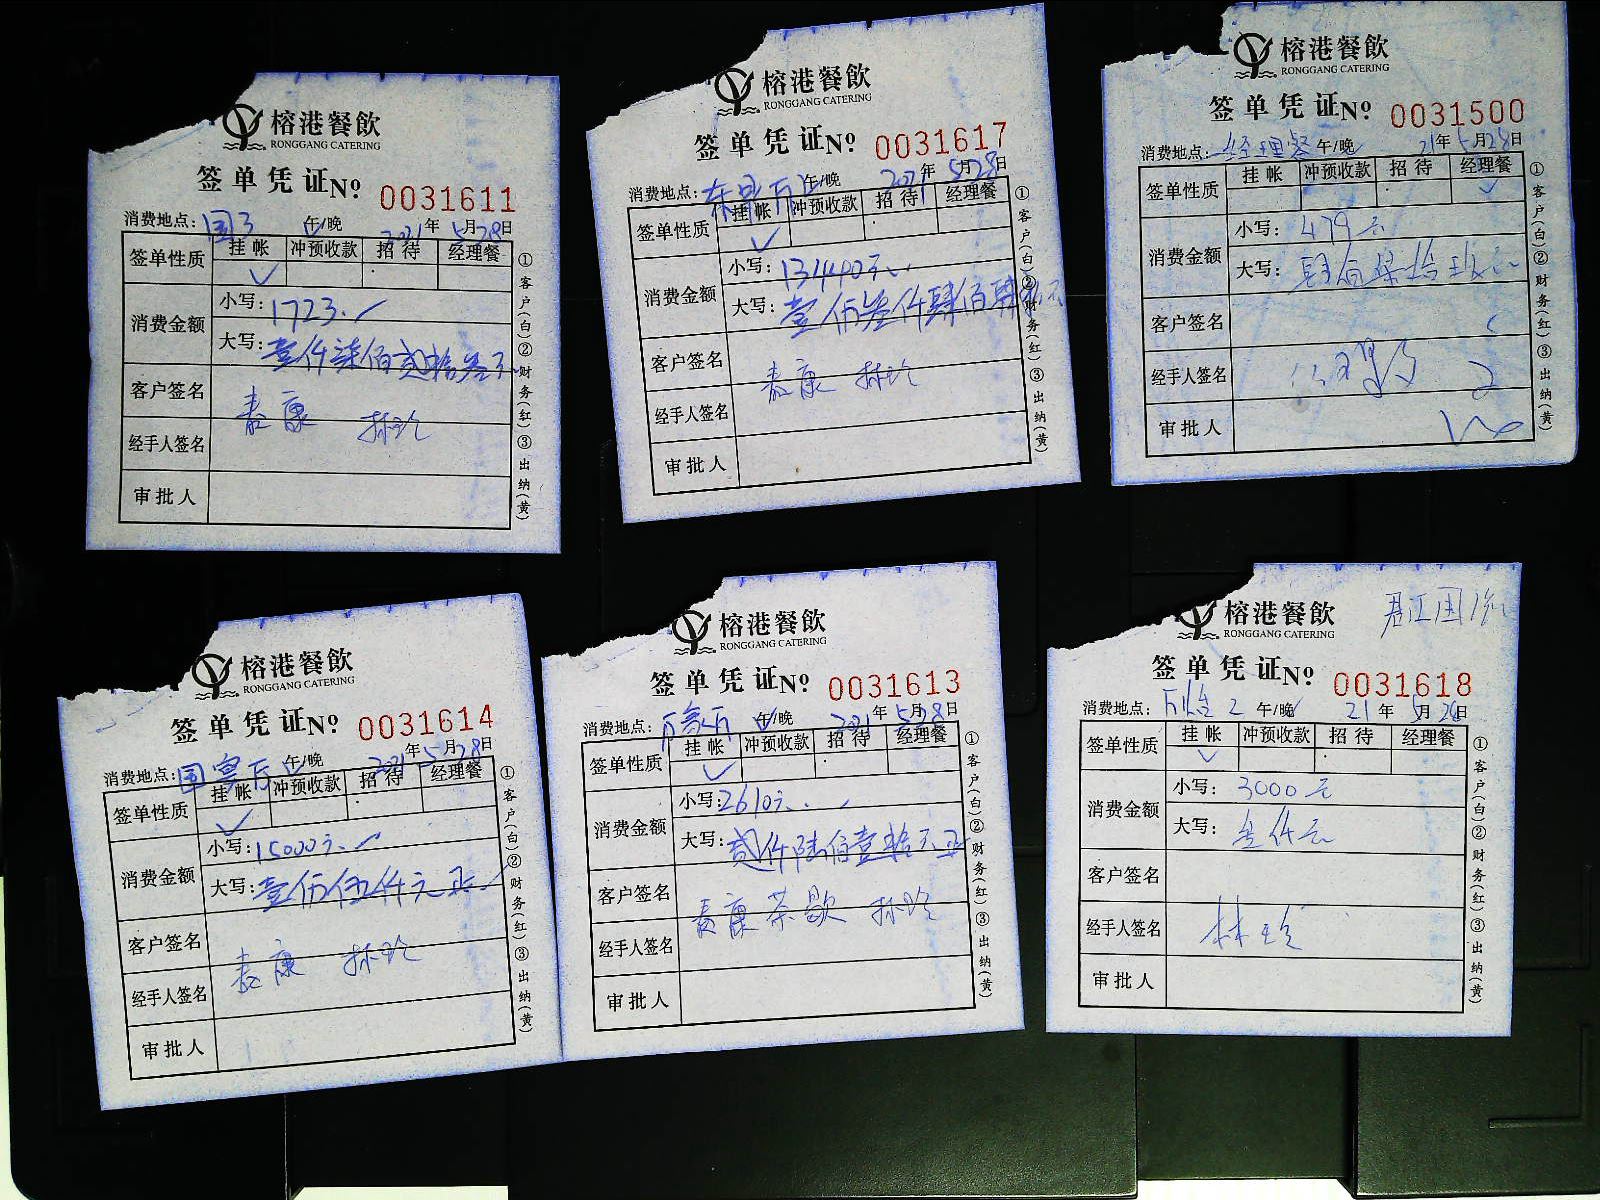 榕港餐飲
RONGGANG CATERING
签单凭证 № 0031611
消费地点: 国3 午/晚 2021年5月28日
签单性质 挂帐 冲预收款 招待 经理餐
✓
消费金额 小写: 1723.
大写: 壹仟柒佰贰拾叁元
客户签名
林玲
经手人签名
审批人
①客户(白)②财务(红)③出纳(黄)
榕港餐飲
RONGGANG CATERING
签单凭证 № 0031617
消费地点: 午/晚 2021年5月28日
签单性质 挂帐 冲预收款 招待 经理餐
✓
消费金额 小写:
大写:
客户签名
林玲
经手人签名
审批人
①客户(白)②财务(红)③出纳(黄)
榕港餐飲
RONGGANG CATERING
签单凭证 № 0031500
消费地点: 经理餐 午/晚 21年5月28日
签单性质 挂帐 冲预收款 招待 经理餐
✓
消费金额 小写: 479元
大写: 肆佰柒拾玖元
客户签名
经手人签名
审批人
①客户(白)②财务(红)③出纳(黄)
榕港餐飲
RONGGANG CATERING
签单凭证 № 0031614
消费地点: 国宴厅 午/晚 2021年5月28日
签单性质 挂帐 冲预收款 招待 经理餐
✓
消费金额 小写: 15000元.
大写: 壹万伍仟元正
客户签名
林玲
经手人签名
审批人
①客户(白)②财务(红)③出纳(黄)
榕港餐飲
RONGGANG CATERING
签单凭证 № 0031613
消费地点: 万象厅 午/晚 2021年5月28日
签单性质 挂帐 冲预收款 招待 经理餐
✓
消费金额 小写: 2610元..
大写: 贰仟陆佰壹拾元正
客户签名
茶歇 林玲
经手人签名
审批人
①客户(白)②财务(红)③出纳(黄)
榕港餐飲
RONGGANG CATERING
签单凭证 № 0031618
消费地点: 午/晚 21年5月28日
签单性质 挂帐 冲预收款 招待 经理餐
✓
消费金额 小写: 3000元
大写: 叁仟元
客户签名
经手人签名 林玲
审批人
①客户(白)②财务(红)③出纳(黄)